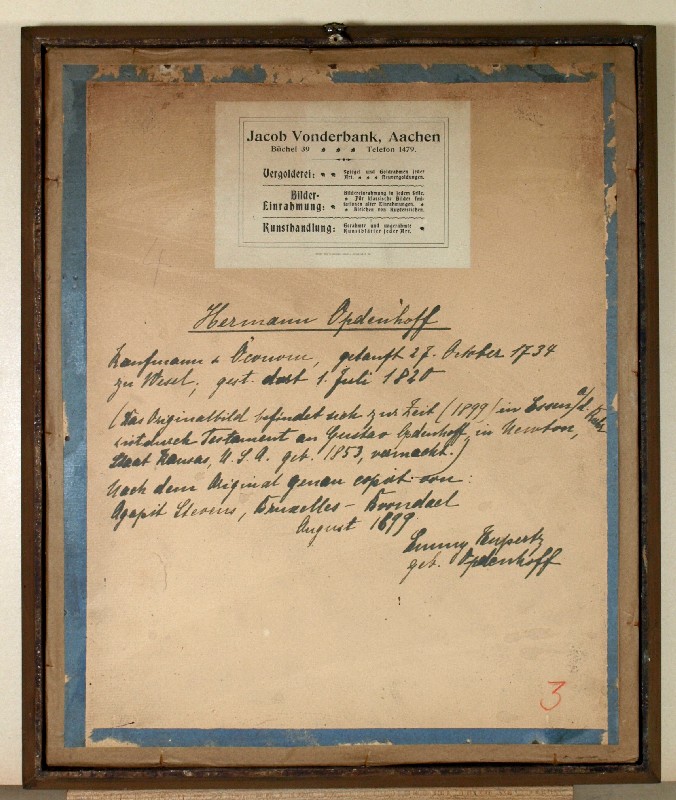 Jacob Vonderbank, Aachen
Büchel 39 Telefon 1479.
Vergolderei: Spiegel und Goldrahmen jeder
Art. Neuvergoldungen.
Bilder-
Einrahmung: Bildereinrahmung in jedem Stile.
Für klassische Bilder
alter Einrahmungen.
Bleichen von Kupferstichen.
Kunsthandlung: Gerahmte und ungerahmte
Kunstblätter jeder Art.
Hermann Opdenhoff
Kaufmann & Öconom, getauft 27. October 1734
zu Wesel, gest. dort 1. Juli 1820
(Das Originalbild befindet sich zur Zeit (1899) in Essen a/d. Ruhr
ist durch Testament an Gustav Opdenhoff in Newton,
Staat Kansas, U.S.A. geb. 1853, vermacht.)
Nach dem Original genau copirt von:
Agapit Stevens, Bruxelles - Boondael
August 1899
Emmy Rupertz
geb. Opdenhoff
3